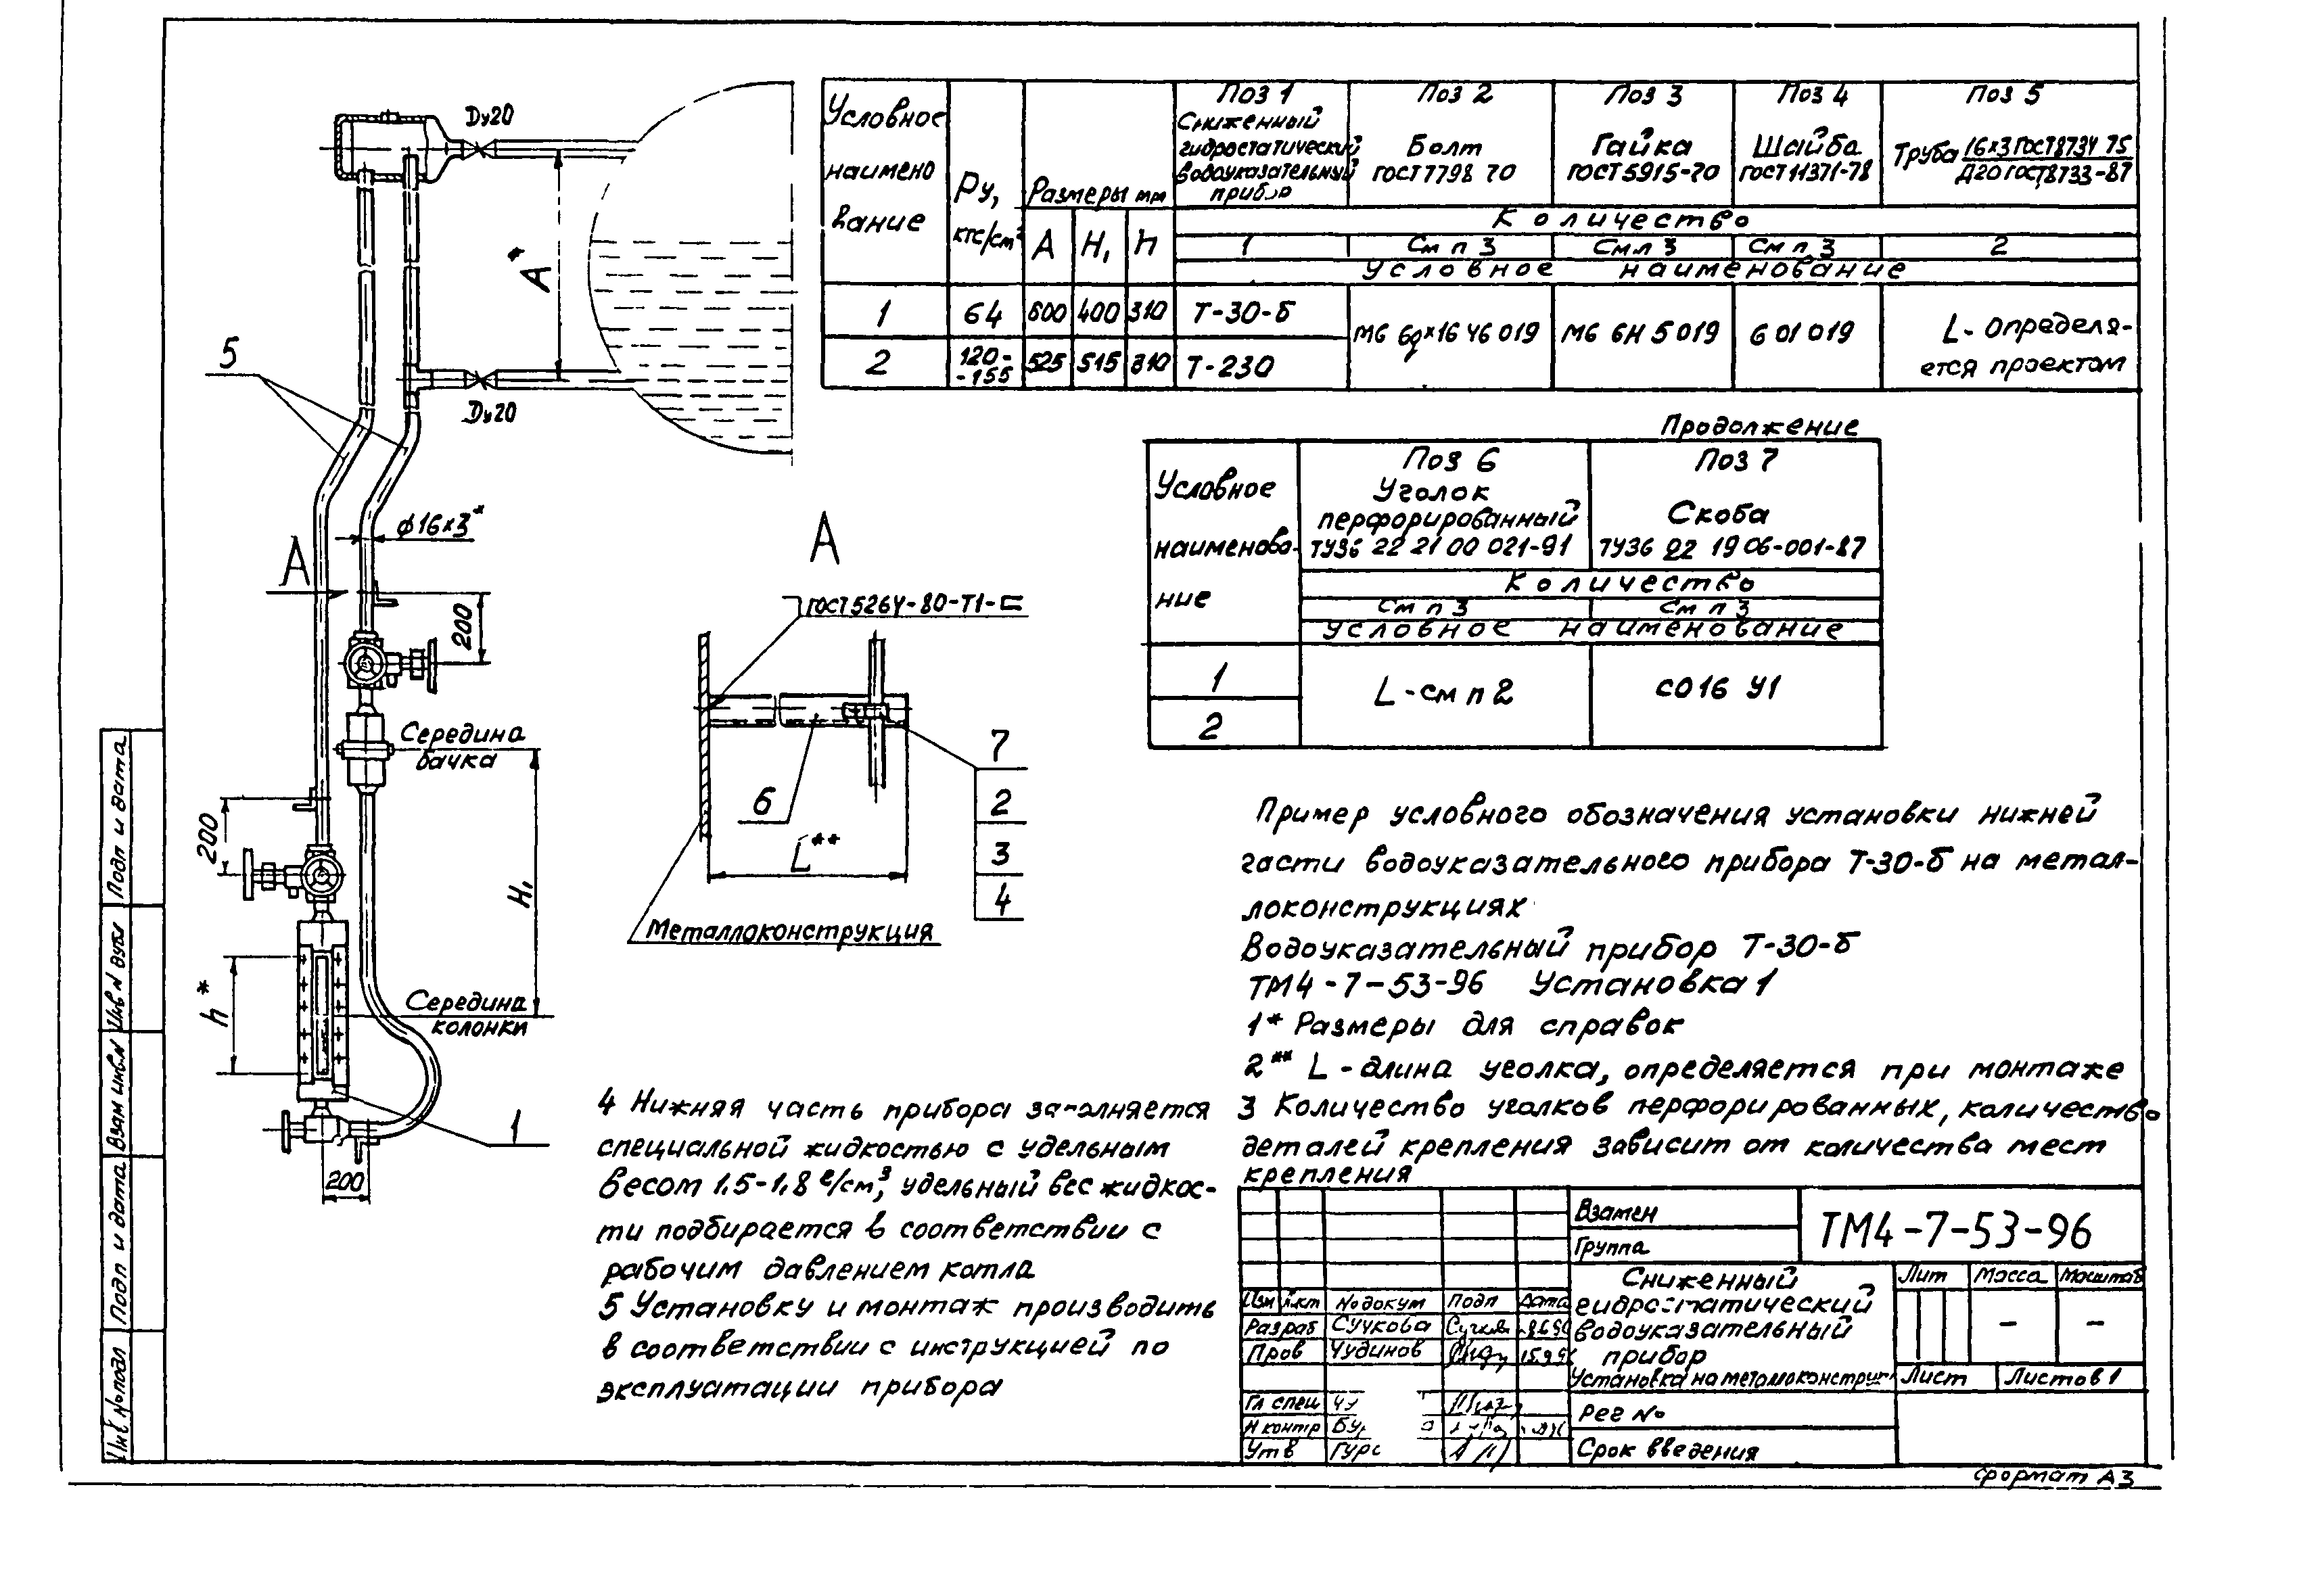 Ду20
А*
5
Ду20
ф16×3*
А
200
Середина
бачка
200
H₁
h*
Середина
колонки
1
200
А
ГОСТ 5264-80-Т1-
6
7
2
3
4
L**
Металлоконструкция
Условное наименование
Ру, кгс/см²
Размеры мм
А H₁ h
Поз 1
Сниженный
гидростатический
водоуказательный
прибор
Поз 2
Болт
ГОСТ 7798 70
Поз 3
Гайка
ГОСТ 5915-70
Поз 4
Шайба
ГОСТ 11371-78
Поз 5
Труба 16×3 ГОСТ 8734 75
Д20 ГОСТ 8733-87
Количество
1 См п 3 См п 3 См п 3 2
Условное наименование
1 64 600 400 310 Т-30-б
2 120-155 525 515 310 Т-230
М6 6g×16 46 019 М6 6Н 5 019 6 01 019
L- определя-
ется проектом
Продолжение
Условное
наименова-
ние
Поз 6
Уголок
перфорированный
ТУ36 22 21 00 021-91
Поз 7
Скоба
ТУ36 22 19 06-001-87
Количество
См п 3 См п 3
Условное наименование
1
2
L-см п 2
СО16 У1
Пример условного обозначения установки нижней
части водоуказательного прибора Т-30-б на метал-
локонструкциях
Водоуказательный прибор Т-30-б
ТМ4-7-53-96 Установка 1
1* Размеры для справок
2** L - длина уголка, определяется при монтаже
3 Количество уголков перфорированных, количество
деталей крепления зависит от количества мест
крепления
4 Нижняя часть прибора заполняется
специальной жидкостью с удельным
весом 1.5-1,8 г/см³, удельный вес жидкос-
ти подбирается в соответствии с
рабочим давлением котла
5 Установку и монтаж производить
в соответствии с инструкцией по
эксплуатации прибора
Взамен
Группа
ТМ4-7-53-96
Сниженный
гидростатический
водоуказательный
прибор
Установка на металлоконструк
Лит Масса Масштаб
- -
Лист Листов 1
Изм Лист № докум Подп Дата
Разраб Сучкова
Пров Чудинов
Гл спец
Н контр
Утв
Рег №
Срок введения
Формат А3
Подп и дата
Инв N дубл
Взам инв.N
Подп и дата
Инв № подл